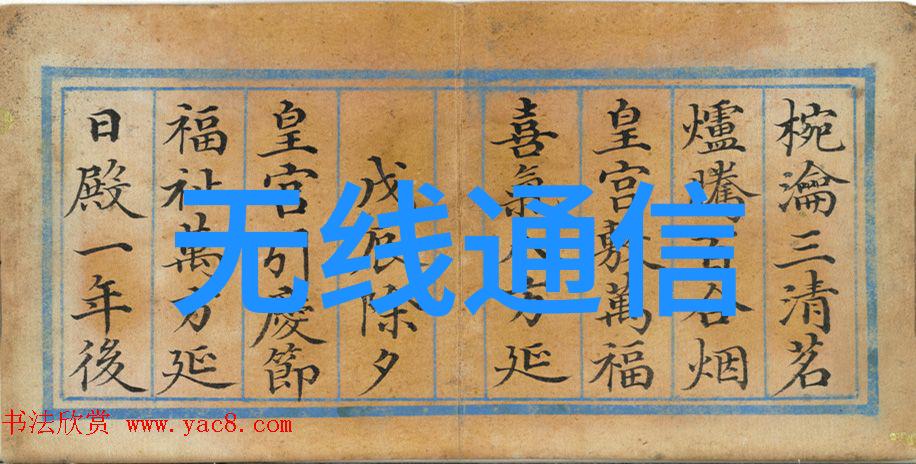 椀瀹三清茗
爐騰百合烟
皇宮敷萬福
喜氣方延
戊辰除夕
皇宮引慶節
福祉萬方延
日殿一年後
无线通信
书法欣赏 www.yac8.com